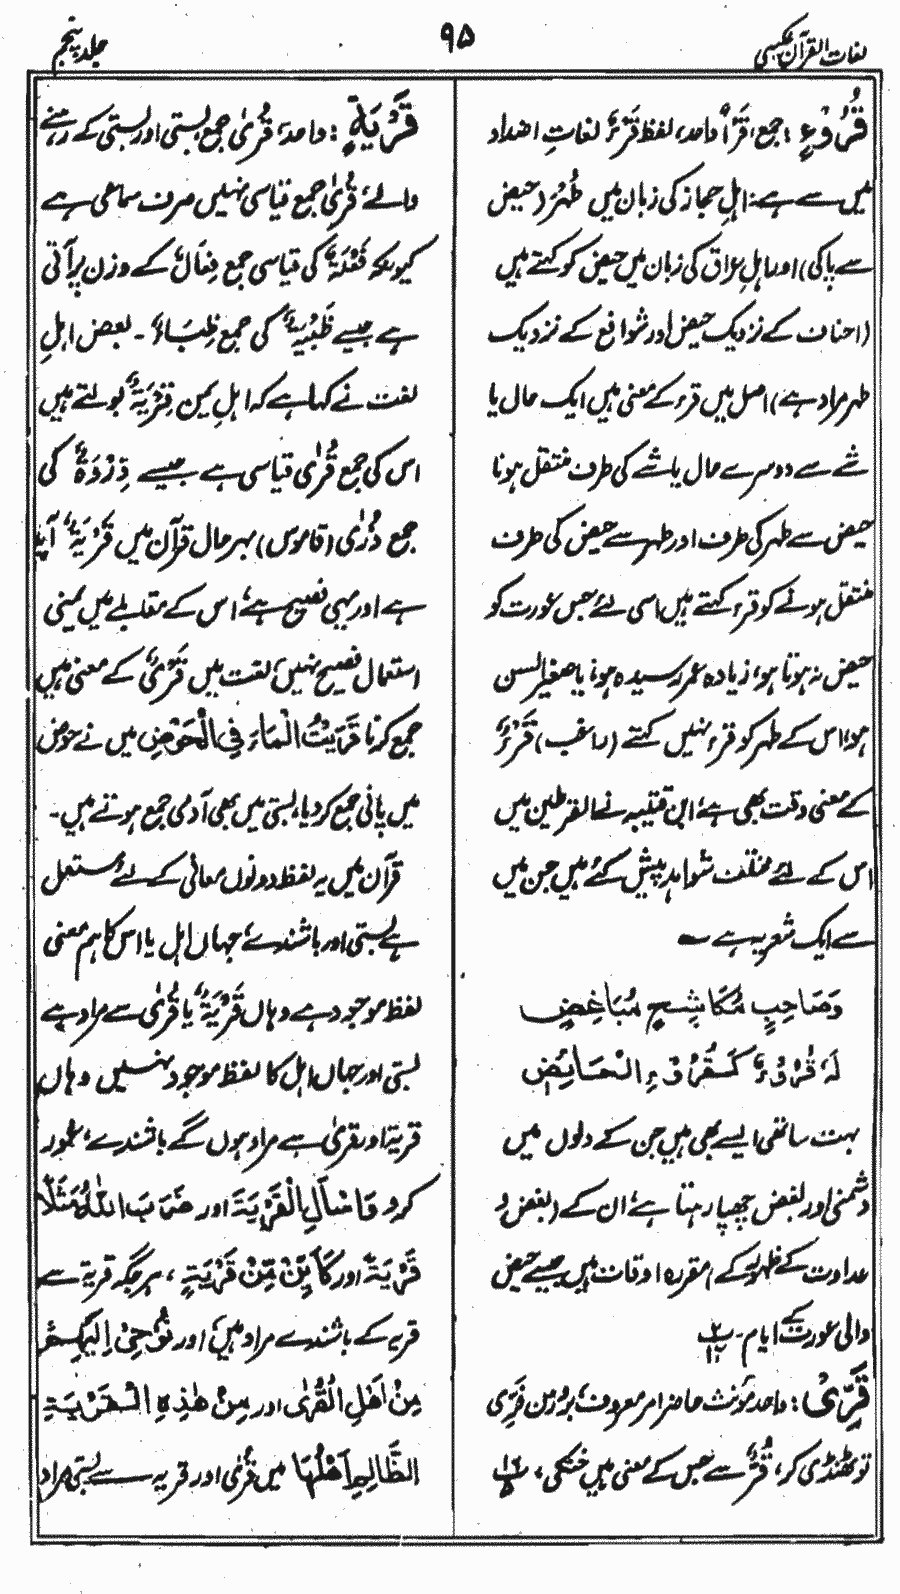 لغات القرآن عکسی
۹۵
جلد پنجم
قُرُوْءٍ : جمع، قَرْأٌ واحد، لفظ قَرْءٌ لغاتِ اضداد
میں سے ہے: اہلِ حجاز کی زبان میں طُہْرٌ (حیض
سے پاکی) اور اہلِ عراق کی زبان میں حیض کو کہتے ہیں
(احناف کے نزدیک حیض اور شوافع کے نزدیک
طہر مراد ہے) اصل میں قرء کے معنی ہیں ایک حال یا
شے سے دوسرے حال یا شے کی طرف منتقل ہونا
حیض سے طہر کی طرف اور طہر سے حیض کی طرف
منتقل ہونے کو قرء کہتے ہیں اسی لئے جس عورت کو
حیض نہ ہوتا ہو، زیادہ عمر رسیدہ ہو، یا صغیر السن
ہو، اس کے طہر کو قرء نہیں کہتے (راغب) قَرْءٌ
کے معنی وقت بھی ہے، ابن قتیبہ نے القرطین میں
اس کے لئے مختلف شواہد پیش کئے ہیں جن میں
سے ایک شعر یہ ہے ۔
وَصَاحِبٍ مُکَاشِحٍ مُبَاغِضٍ
لَہٗ قُرُوْءٌ کَقُرُوْءِ الْحَائِضِ
بہت ساتھی ایسے بھی ہیں جن کے دلوں میں
دشمنی اور بغض چھپا رہتا ہے، ان کے (بغض و
عداوت کے ظہور کے) مقررہ اوقات ہیں جیسے حیض
والی عورت کے ایام۔
قَرِّیْ : واحد مؤنث حاضر امر معروف، بروزن فِرِّی
تو ٹھنڈی کر، قُرٌّ سے جس کے معنی ہیں خنکی،
قَرْیَۃٍ : واحد، قُرٰی جمع، بستی اور بستی کے رہنے
والے، قُرٰی جمع قیاسی نہیں صرف سماعی ہے
کیونکہ فَعْلَۃٌ کی قیاسی جمع فِعَالٌ کے وزن پر آتی
ہے جیسے ظَبْیَۃٌ کی جمع ظِبَاءٌ ۔ بعض اہلِ
لغت نے کہا ہے کہ اہلِ یمن قِرْیَۃٌ بولتے ہیں
اس کی جمع قُرٰی قیاسی ہے جیسے ذِرْوَۃٌ کی
جمع ذُرٰی (قاموس) بہرحال قرآن میں قَرْیَۃٌ آیا
ہے اور یہی فصیح ہے، اس کے مقابلے میں یمنی
استعمال فصیح نہیں، لغت میں قَرْیٌ کے معنی ہیں
جمع کرنا قَرَیْتُ الْمَاءَ فِی الْحَوْضِ میں نے حوض
میں پانی جمع کر دیا، بستی میں بھی آدمی جمع ہوتے ہیں۔
قرآن میں یہ لفظ دونوں معانی کے لئے مستعمل
ہے بستی اور باشندے، جہاں اہل یا اس کا ہم معنی
لفظ موجود ہے وہاں قَرْیَۃٌ یا قُرٰی سے مراد ہے
بستی اور جہاں اہل کا لفظ موجود نہیں وہاں
قریۃ اور قریٰ سے مراد ہوں گے باشندے، غور
کرو فَاسْأَلِ الْقَرْیَۃَ اور ضَرَبَ اللّٰہُ مَثَلًا
قَرْیَۃً اور کَأَیِّنْ مِّنْ قَرْیَۃٍ ، ہر جگہ قریۃ سے
قریہ کے باشندے مراد ہیں، اور نُوْحِیْ اِلَیْہِمْ
مِنْ اَہْلِ الْقُرٰی اور مِنْ ہٰذِہِ الْقَرْیَۃِ
الظَّالِمِ اَہْلُہَا میں قُرٰی اور قریہ سے بستی مراد